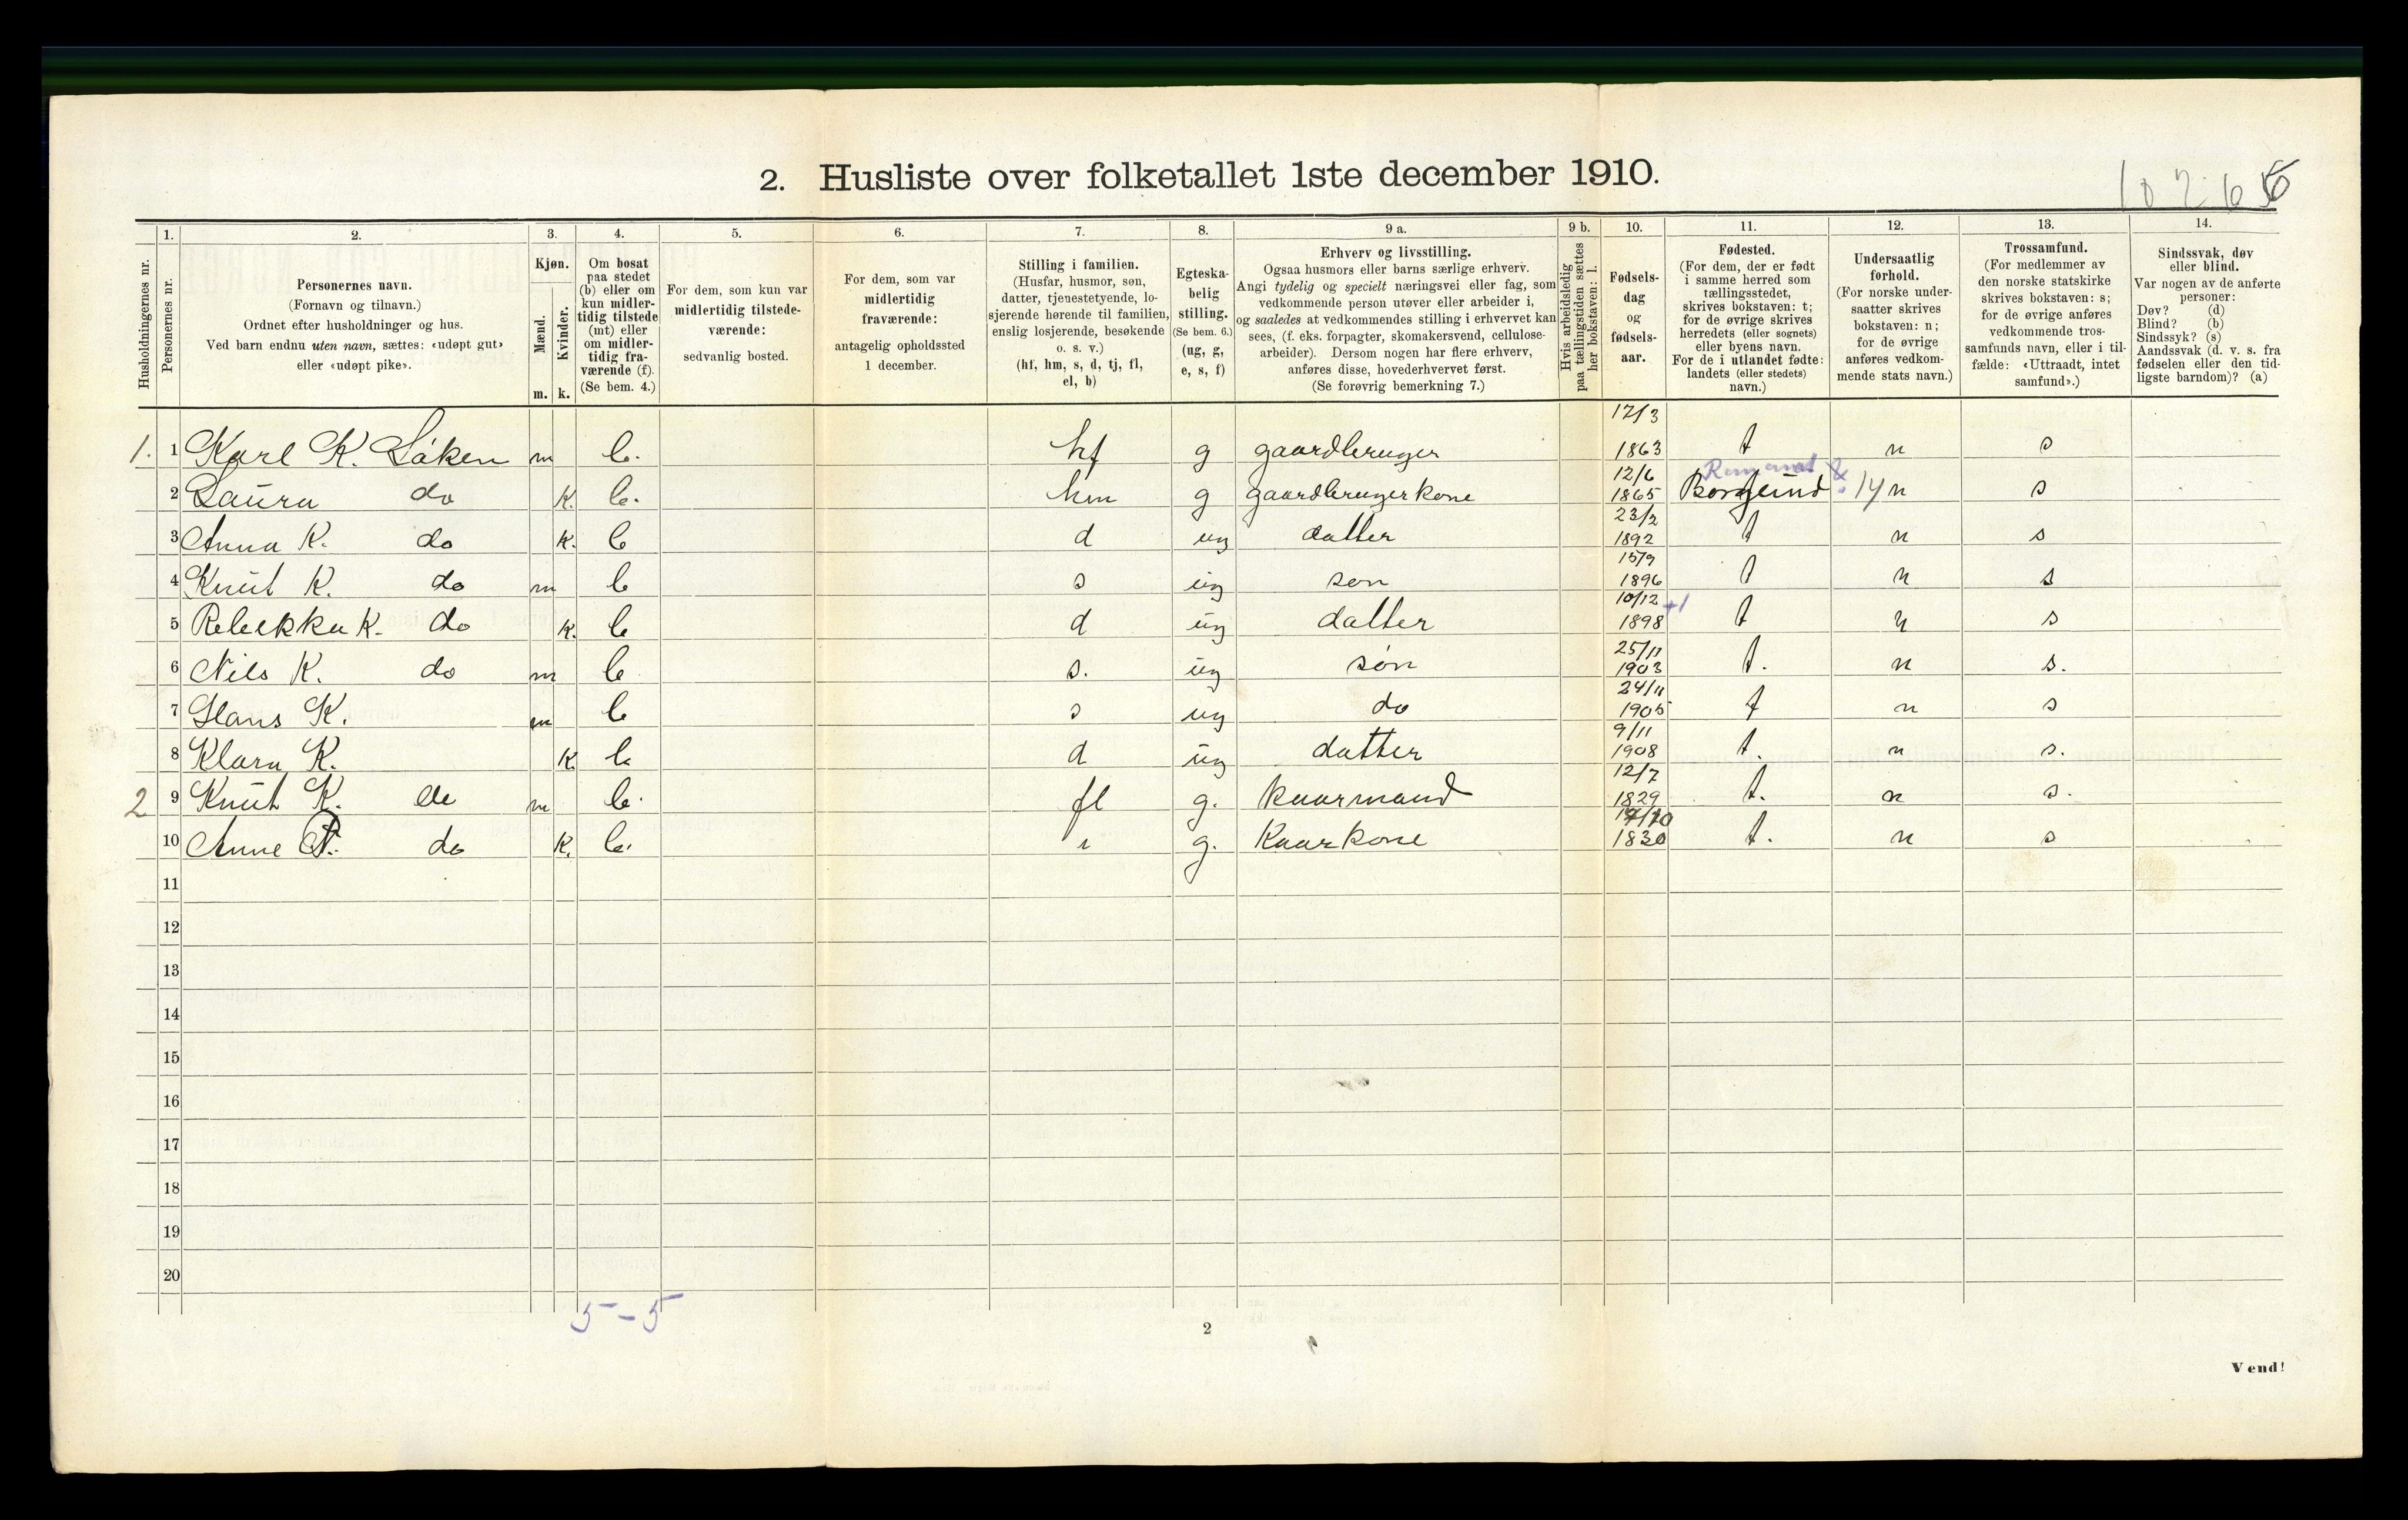 2. Husliste over folketallet 1ste december 1910.
Husholdningernes nr.
1. Personernes nr.
2. Personernes navn.
(Fornavn og tilnavn.)
Ordnet efter husholdninger og hus.
Ved barn endnu uten navn, sættes: «udøpt gut»
eller «udøpt pike».
3. Kjøn.
Mænd. m.
Kvinder. k.
4. Om bosat
paa stedet
(b) eller om
kun midler-
tidig tilstede
(mt) eller
om midler-
tidig fra-
værende (f).
(Se bem. 4.)
5. For dem, som kun var
midlertidig tilstede-
værende:
sedvanlig bosted.
6. For dem, som var
midlertidig
fraværende:
antagelig opholdssted
1 december.
7. Stilling i familien.
(Husfar, husmor, søn,
datter, tjenestetyende, lo-
sjerende hørende til familien,
enslig losjerende, besøkende
o. s. v.)
(hf, hm, s, d, tj, fl,
el, b)
8. Egteska-
belig
stilling.
(Se bem. 6.)
(ug, g,
e, s, f)
9 a. Erhverv og livsstilling.
Ogsaa husmors eller barns særlige erhverv.
Angi tydelig og specielt næringsvei eller fag, som
vedkommende person utøver eller arbeider i,
og saaledes at vedkommendes stilling i erhvervet kan
sees, (f. eks. forpagter, skomakersvend, cellulose-
arbeider). Dersom nogen har flere erhverv,
anføres disse, hovederhvervet først.
(Se forøvrig bemerkning 7.)
9 b. Hvis arbeidsledig
paa tællingstiden sættes
her bokstaven: l.
10. Fødsels-
dag
og
fødsels-
aar.
11. Fødested.
(For dem, der er født
i samme herred som
tællingsstedet,
skrives bokstaven: t;
for de øvrige skrives
herredets (eller sognets)
eller byens navn.
For de i utlandet fødte:
landets (eller stedets)
navn.)
12. Undersaatlig
forhold.
(For norske under-
saatter skrives
bokstaven: n;
for de øvrige
anføres vedkom-
mende stats navn.)
13. Trossamfund.
(For medlemmer av
den norske statskirke
skrives bokstaven: s;
for de øvrige anføres
vedkommende tros-
samfunds navn, eller i til-
fælde: «Uttraadt, intet
samfund».)
14. Sindssvak, døv
eller blind.
Var nogen av de anførte
personer:
Døv? (d)
Blind? (b)
Sindssyk? (s)
Aandssvak (d. v. s. fra
fødselen eller den tid-
ligste barndom)? (a)
1. 1 Karl K. Løken m b. hf g gaardbruger 17/3 1863 t n s
2 Laura do k. b. hm g gaardbrugerkone 12/6 1865 Borgund 14 n s
3 Anna K. do k. b d ug datter 23/2 1892 t n s
4 Knut K. do m b s ug søn 15/9 1896 t n s
5 Rebekka K. do k. b d ug datter 10/12 1898 t n s
6 Nils K. do m b s. ug søn 25/11 1903 t. n s.
7 Hans K. m b s ug do 24/11 1905 t n s
8 Klara K. k b. d ug datter 9/11 1908 t. n s.
2 9 Knut K. do m b. fl g. kaarmand 12/7 1829 t. n s.
10 Anne P. do k. b. g. Kaarkone 1830 t. n s
11
12
13
14
15
16
17
18
19
20
5-5
2
Vend!